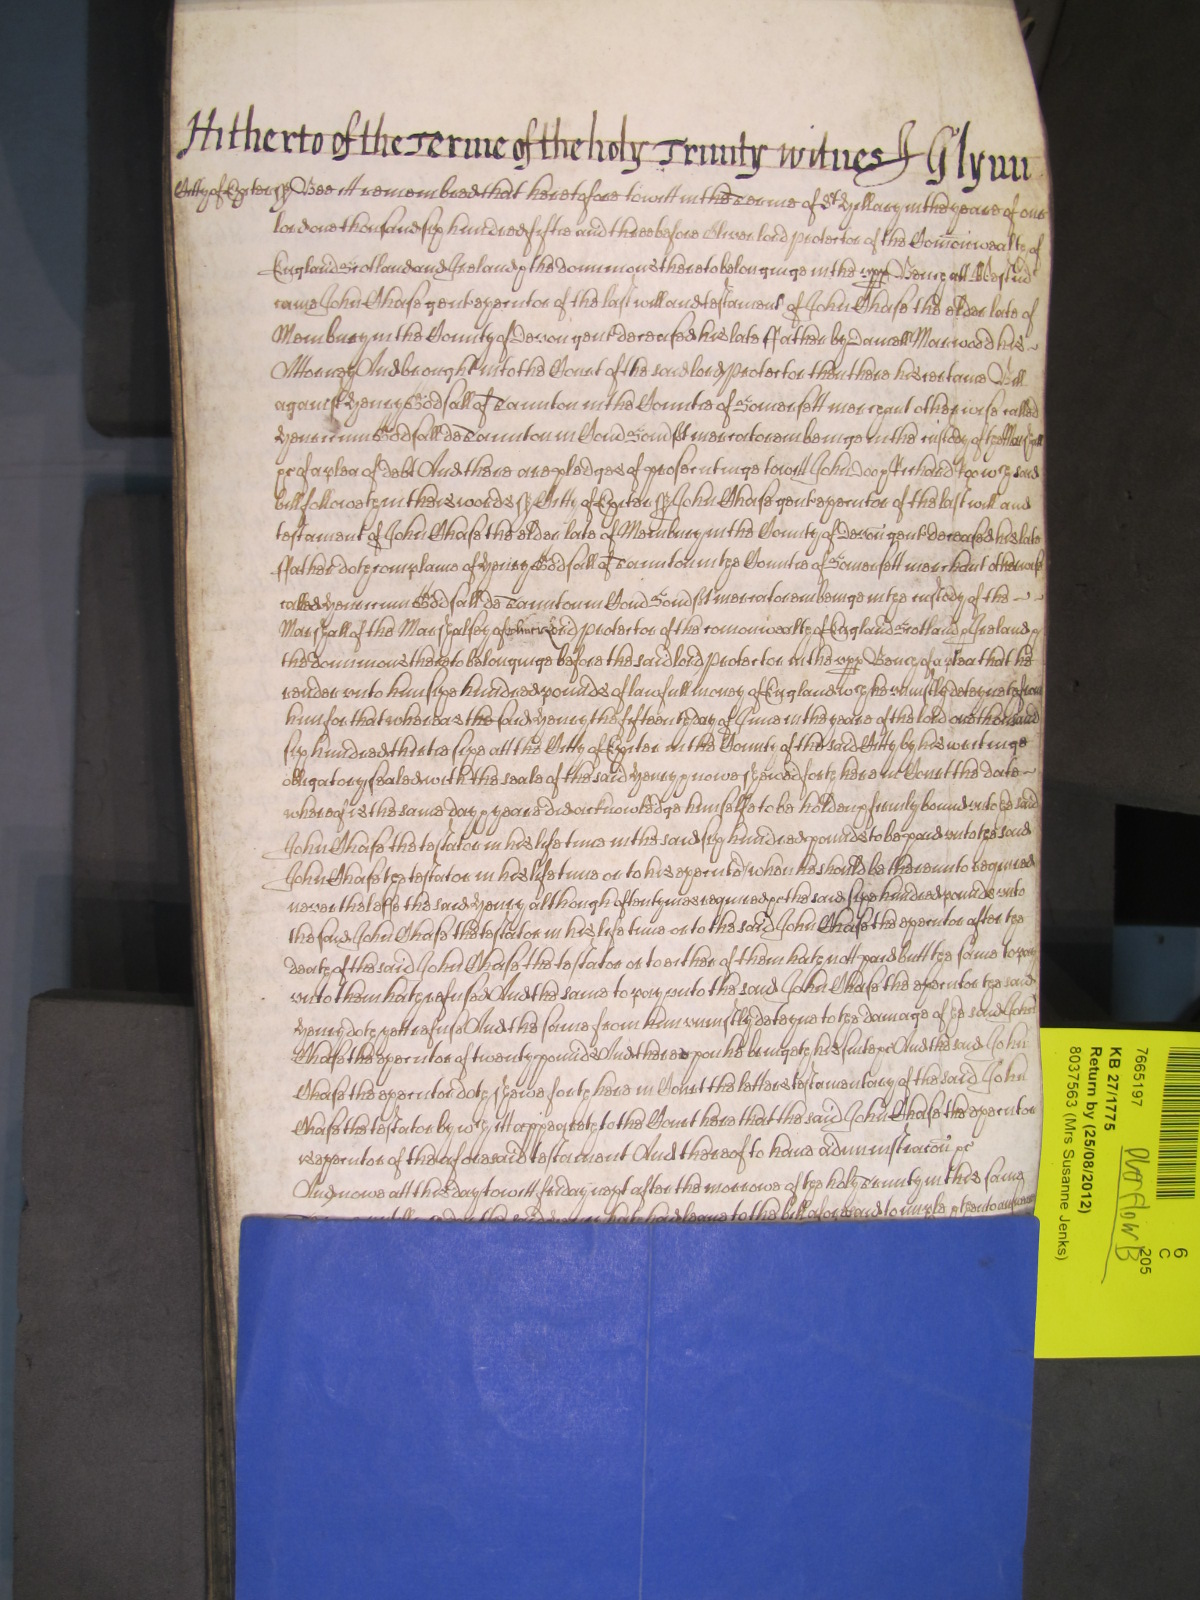 Hitherto of the Terme of the holy Trinity witnes J Glynn
Citty of Exeter ss Bee itt remembred that heretofore towitt in the Terme of St Hillary in the yeare of our
lord one thousand six hundred fiftie and three before Oliver lord protector of the Comonwealth of
England Scotland and Ireland & the dominions thereto belonginge in the upp Bench att Westm
came John Chase gent executor of the last will and testament of John Chase the elder late of
Membury in the County of Devon gent deceased his late ffather by Daniell Marwood his
Attorney And brought into the Court of the said lord protector then there his certaine Bill
against Henry Godsall of Taunton in the Countie of Somersett merchant otherwise called
Henricum Godsall de Taunton in Com Somst mercatorem beinge in the custody of the Marshall
&c of a plea of debt And there are pledges of prosecutinge towitt John doo & Richard roo wch said
bill followeth in these words ss Citty of Exeter ss John Chase gent executor of the last will and
testament of John Chase the elder late of Membury in the County of Devon gent deceased his late
ffather doth complaine of Henry Godsall of Taunton in the Countie of Somersett merchant otherwise
called Henricum Godsall de Taunton in Com Somst mercatorem beinge in the custody of the
Marshall of the Marshalsey of Oliver Lord protector of the comonwealth of England Scotland & Ireland &
the dominions thereto belonginge before the said lord protector in the upp Bench of a plea that he
render unto him sixe hundred pounds of lawfull money of England wch he uniustly deteyneth from
him for that whereas the said Henry the fifteenth day of June in the yeare of the lord one thousand
six hundred thirtie sixe att the Citty of Exeter in the County of the said Citty by his writinge
obligatory sealed with the seale of the said Henry & nowe shewed forth here in Court the date
whereof is the same day & yeare did acknowledge himselfe to be holden & firmly bound unto the said
John Chase the testator in his life time in the said six hundred pounds to be paid unto the said
John Chase the testator in his life time or to his executor when he should be thereunto required
neverthelesse the said Henry although oftentymes required &c the said sixe hundred pounds unto
the said John Chase the testator in his life time or to the said John Chase the executor after the
death of the said John Chase the testator or to either of them hath nott paid butt the same to pay
unto them hath refused And the same to pay unto the said John Chase the executor the said
Henry doth yett refuse And the same from him uniustly deteyne to the damage of the said John
Chase the executor of twenty pounds And thereupon he bringeth his suite &c And the said John
Chase the executor doth shewe forth here in Court the letters testamentary of the said John
Chase the testator by wch itt appeareth to the Court here that the said John Chase the executor
is executor of the aforesaid testament And thereof to have administracon &c
And nowe att this day towitt friday next after the morrowe of the holy Trinity in this same
hath had leave to the bill aforesaid to imple & then to answere
7665197
KB 27/1775
Return by (25/08/2012)
8037563 (Mrs Susanne Jenks)
6
C
205